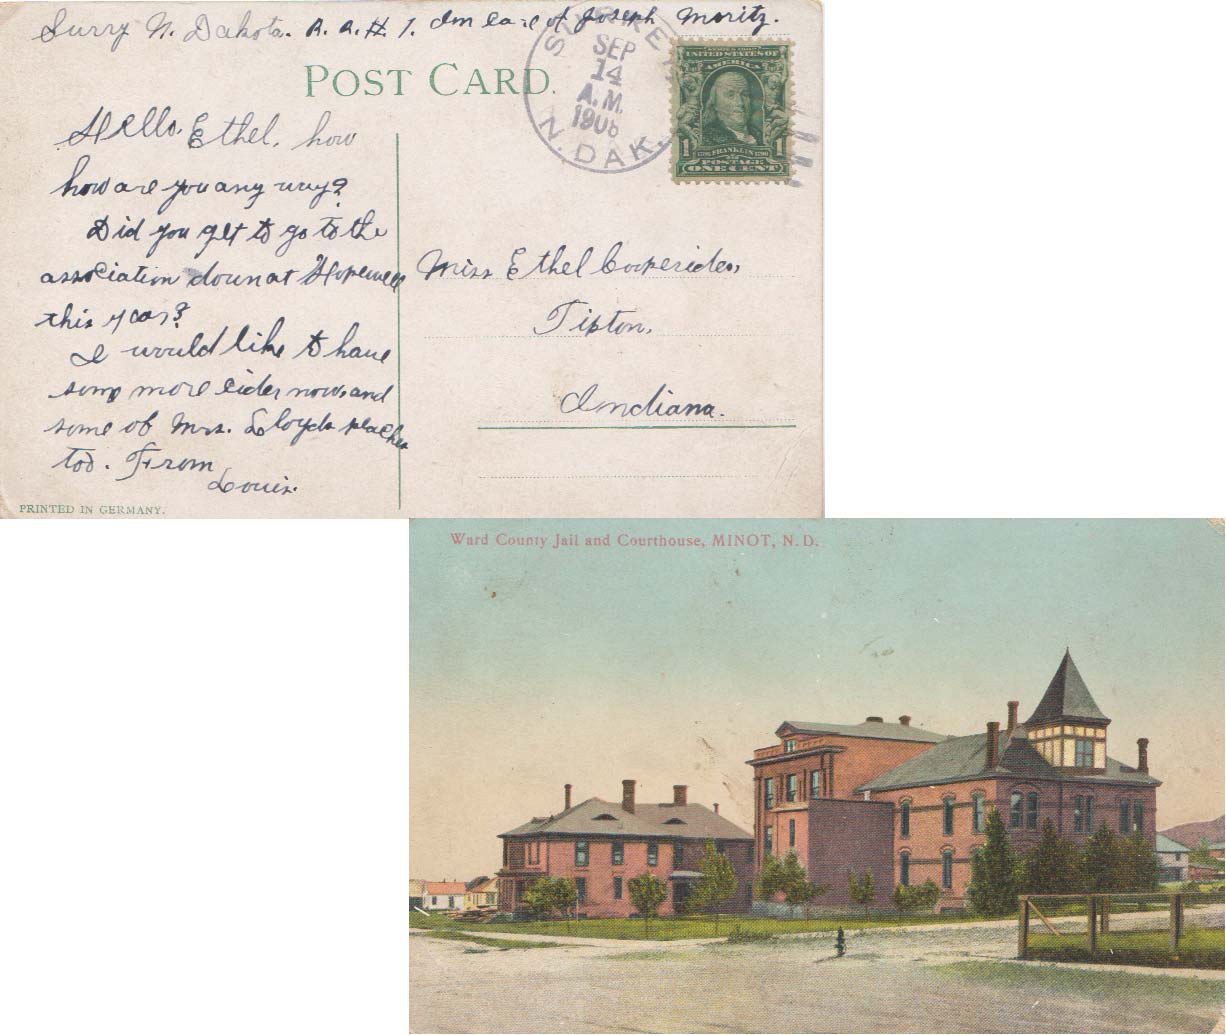 Surry N. Dakota. R.R.# 1. In care of Joseph Moritz.
POST CARD.
SEP
14
A.M.
1908
N. DAK.
UNITED STATES OF
AMERICA
1 FRANKLIN 1
POSTAGE
ONE CENT
Hello, Ethel, how
how are you any way?
Did you get to go to the
association down at Hopewell
this year?
I would like to have
some more cider now, and
some of Mrs. Lloyds peaches
too. From
Louis.
Miss Ethel Cooperider,
Tipton,
Indiana.
PRINTED IN GERMANY.
Ward County Jail and Courthouse, MINOT, N. D.